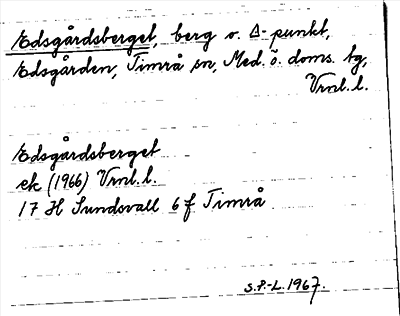 Edsgårdsberget, berg o. Δ-punkt,
Edsgården, Timrå sn, Med. ö. doms. tg,
Vrnl. l.
Edsgårdsberget
ek (1966) Vrnl. l.
17 H Sundsvall 6 f Timrå
S.P.-L. 1967.